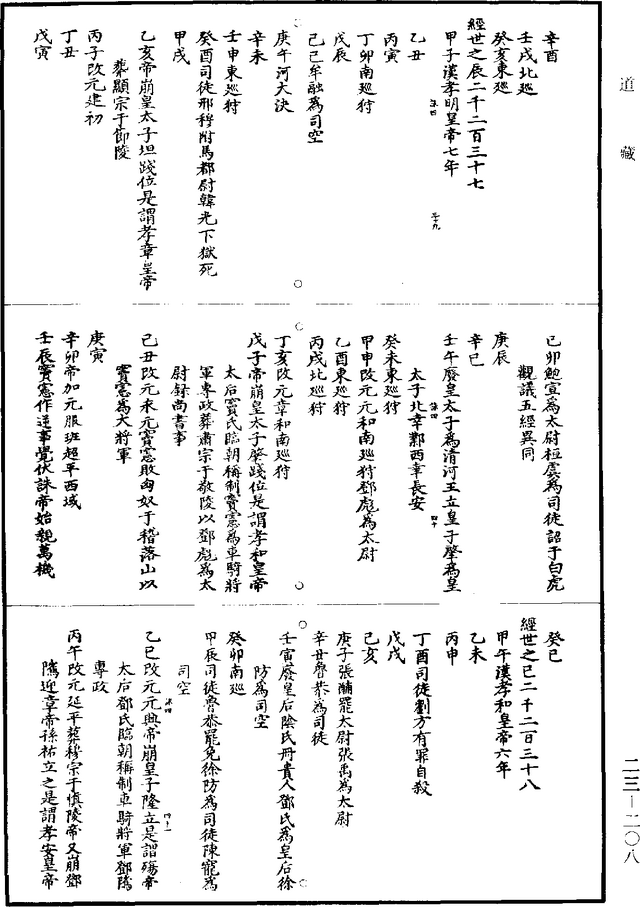 道藏
辛酉
壬戌北巡
癸亥東巡
經世之辰二千二百三十七
甲子漢孝明皇帝七年
乙丑
丙寅
丁卯南巡狩
戊辰
己巳牟融為司空
庚午河大決
辛未
壬申東巡狩
癸酉司徒邢穆附馬都尉韓光下獄死
甲戌
乙亥帝崩皇太子坦踐位是謂孝章皇帝
葬顯宗于節陵
丙子改元建初
丁丑
戊寅
己卯鮑宣為太尉桓虞為司徒詔于白虎
觀議五經異同
庚辰
辛巳
壬午廢皇太子為清河王立皇子肇為皇
太子北幸鄴西幸長安
癸未東巡狩
甲申改元元和南巡狩鄧彪為太尉
乙酉東巡狩
丙戌北巡狩
丁亥改元章和南巡狩
戊子帝崩皇太子肇踐位是謂孝和皇帝
太后竇氏臨朝稱制竇憲為車騎將
軍專政葬肅宗于敬陵以鄧彪為太
尉錄尚書事
己丑改元永元竇憲敗匈奴于稽落山以
竇憲為大將軍
庚寅
辛卯帝加元服班超平西域
壬辰竇憲作逆事覺伏誅帝始親萬機
癸巳
經世之巳二千二百三十八
甲午漢孝和皇帝六年
乙未
丙申
丁酉司徒劉方有罪自殺
戊戌
己亥
庚子張酺罷太尉張禹為太尉
辛丑魯恭為司徒
壬寅廢皇后陰氏冊貴人鄧氏為皇后徐
防為司空
癸卯南巡
甲辰司徒魯恭罷免徐防為司徒陳寵為
司空
乙巳改元元興帝崩皇子隆立是謂殤帝
太后鄧氏臨朝稱制車騎將軍鄧騭
專政
丙午改元延平葬穆宗于慎陵帝又崩鄧
騭迎章帝孫祐立之是謂孝安皇帝
二三—二〇八